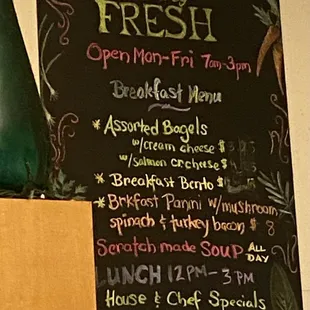 FRESH
Open Mon-Fri 7am-3pm
Breakfast Menu
* Assorted Bagels
w/cream cheese $
w/salmon cr cheese $
* Breakfast Bento $
* Brkfast Panini w/mushroom,
spinach & turkey bacon $ 8
Scratch made SOUP ALL
DAY
LUNCH 12PM-3PM
House & Chef Specials